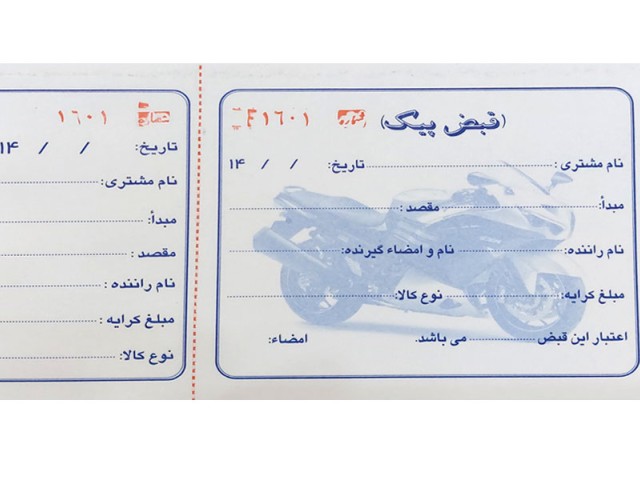 (قبض پیک) شماره ۱٦۰۱
نام مشتری : تاریخ: / / ۱۴
مبدأ: مقصد :
نام راننده: نام و امضاء گیرنده:
مبلغ کرایه: نوع کالا:
اعتبار این قبض می باشد. امضاء:
شماره ۱٦۰۱
تاریخ: / / ۱۴
نام مشتری:
مبدأ:
مقصد :
نام راننده :
مبلغ کرایه :
نوع کالا: